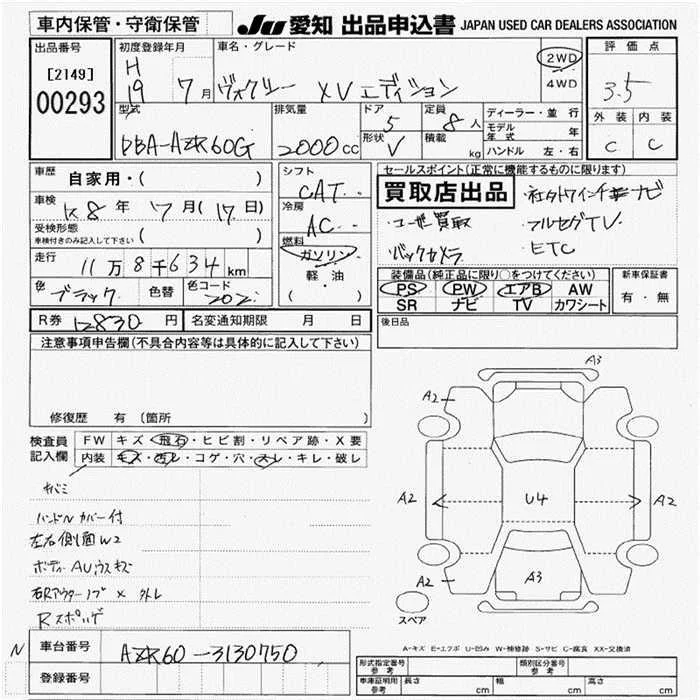 車内保管・守衛保管 JU 愛知 出品申込書 JAPAN USED CAR DEALERS ASSOCIATION
出品番号 初度登録年月 車名・グレード 評価点
[2149] H 19 7月 ヴォクシー XV エディション 2WD 3.5
00293 4WD
型式 排気量 ドア 定員 ディーラー・並行 外装 内装
DBA-AZR60G 2000cc 5 8人 モデル年式 年 C C
形状 V 積載 kg ハンドル 左・右
車歴 自家用・( ) シフト CAT セールスポイント(正常に機能するものに限ります)
車検 8年 7月(17日) 冷房 AC 買取店出品 ナビ
受検形態 ・ユーザ買取 ・フルセグTV
車検付きのみ記入して下さい ( ) 燃料 ・バックカメラ ・ETC
走行 11万8千634km ガソリン 装備品(純正品に限り○をつけてください) 新車保証書
軽・油 PS PW エアB AW 有・無
色 ブラック 色替 色コード 202 ( ) SR ナビ TV カワシート
R券 12830円 名変通知期限 月 日 後日品
注意事項申告欄(不具合内容等は具体的に記入して下さい)
A3
A2
修復歴 有(箇所 )
検査員記入欄 FW キズ・飛石・ヒビ割・リペア跡・X要
内装 キズ・汚レ・コゲ・穴・スレ・キレ・破レ
A2 U4 A2
ハンドルカバー付
左右側面W2
ボディーAUウスキズ
A2 A3
スペア
N 車台番号 AZR60-3130750
A-キズ E-エクボ U-凹み W-補修跡 S-サビ C-腐食 XX-交換済
登録番号
型式指定番号 参考 類別区分番号 参考
車庫証明用 参考 長さ cm 幅 cm 高さ cm